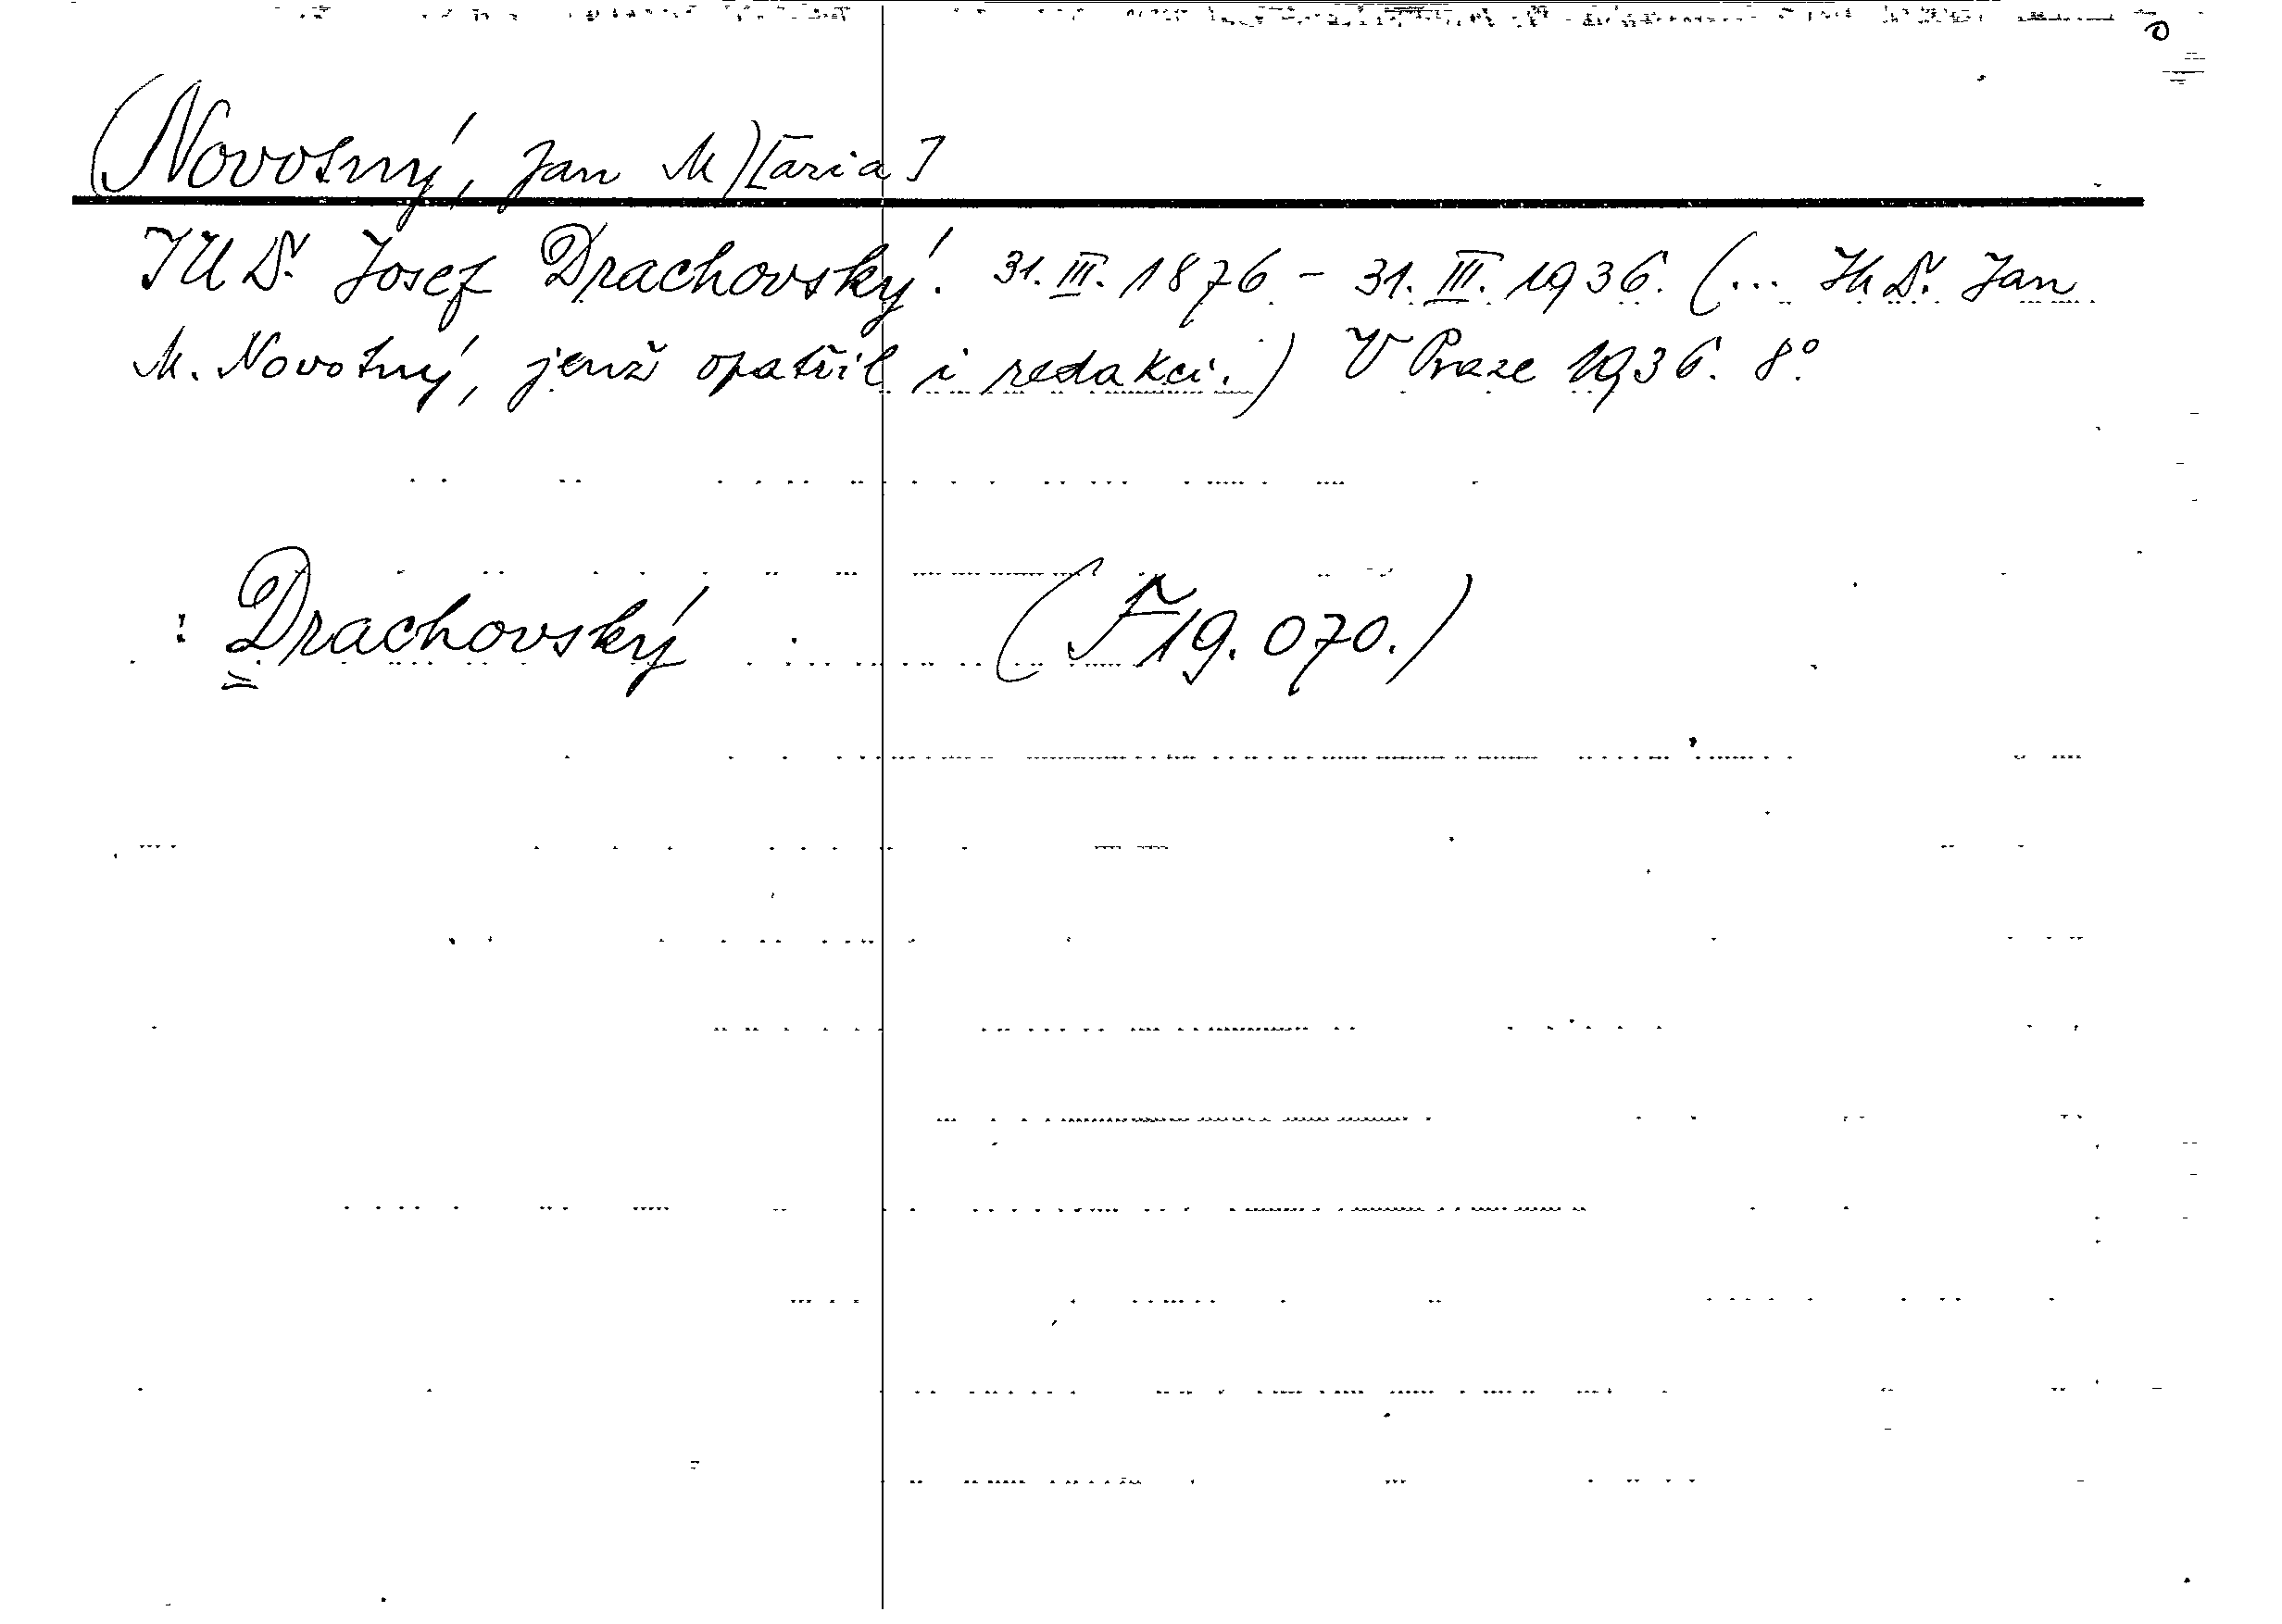 (Novotný, Jan M)[aria]
JUDr. Josef Drachovský. 31. III. 1876 - 31. III. 1936. (... JUDr. Jan
M. Novotný, jenž opatřil i redakci.) V Praze 1936. 8°.
: Drachovský (F 19.070.)